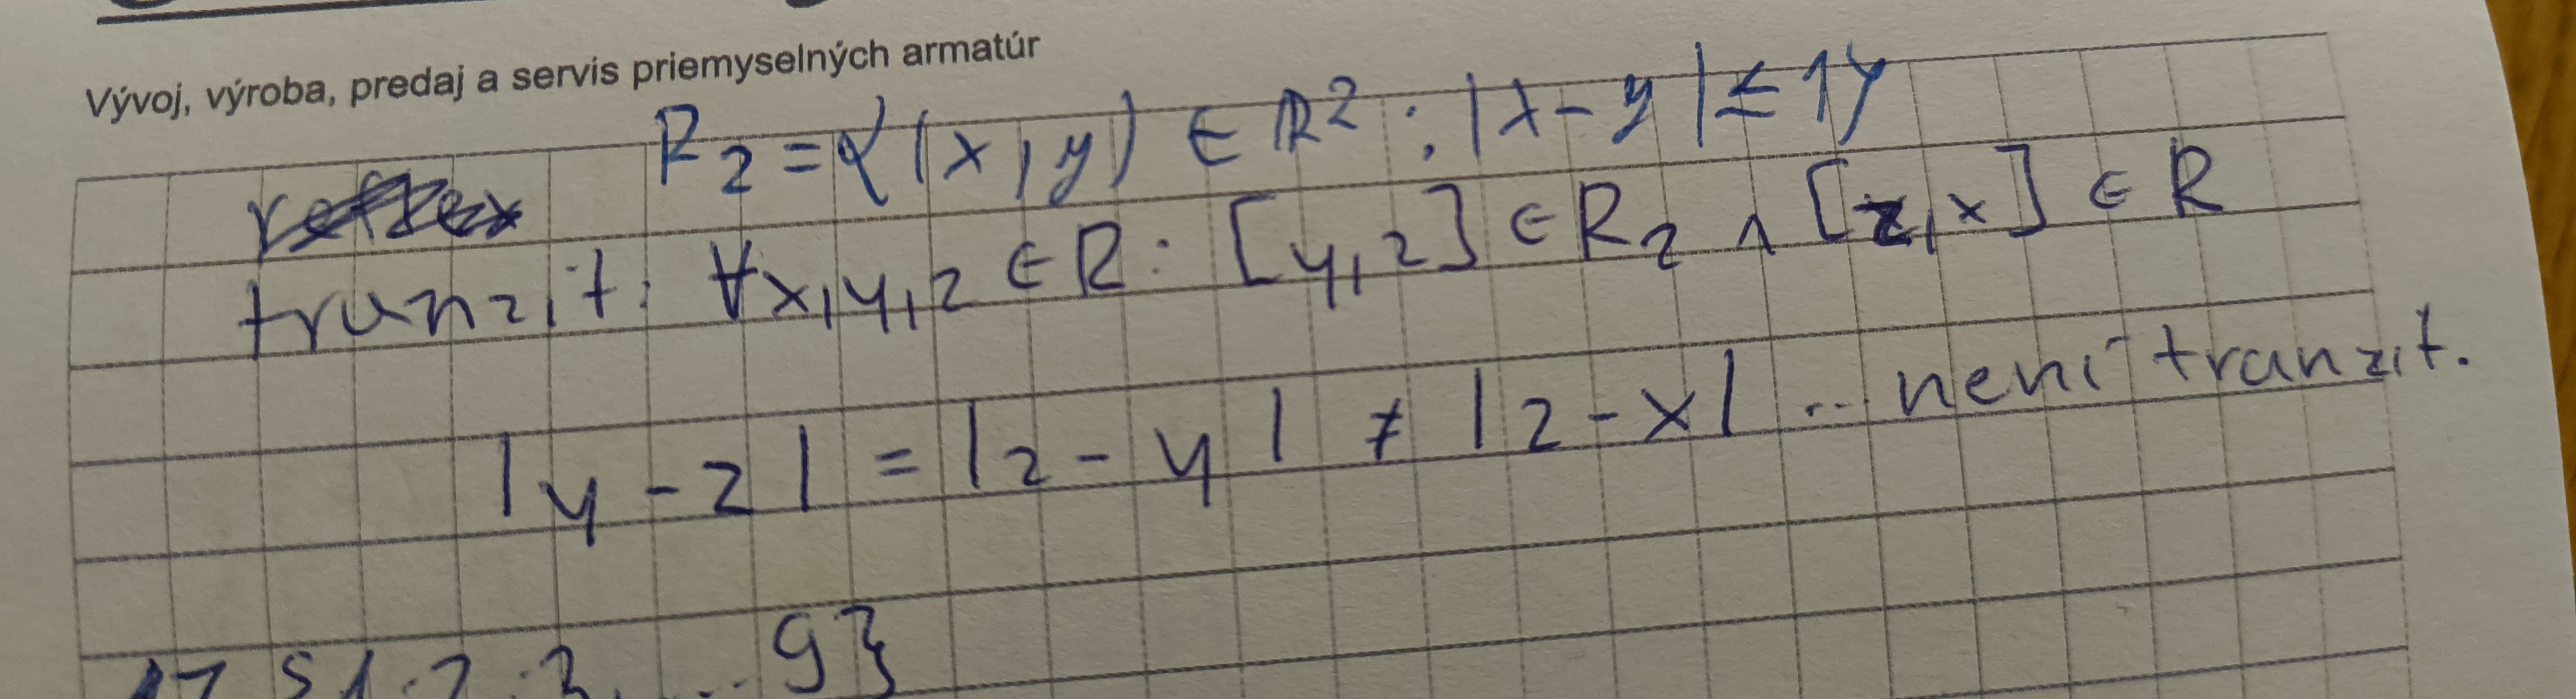 Vývoj, výroba, predaj a servis priemyselných armatúr
R₂ = {(x, y) ∈ ℝ² : |x - y| ≤ 1}
reflex
tranzit: ∀x, y, z ∈ R: [y, z] ∈ R₂ ∧ [z, x] ∈ R
|y - z| = |z - y| ≠ |z - x| ... není tranzit.
1, 2, 3, ... 9}